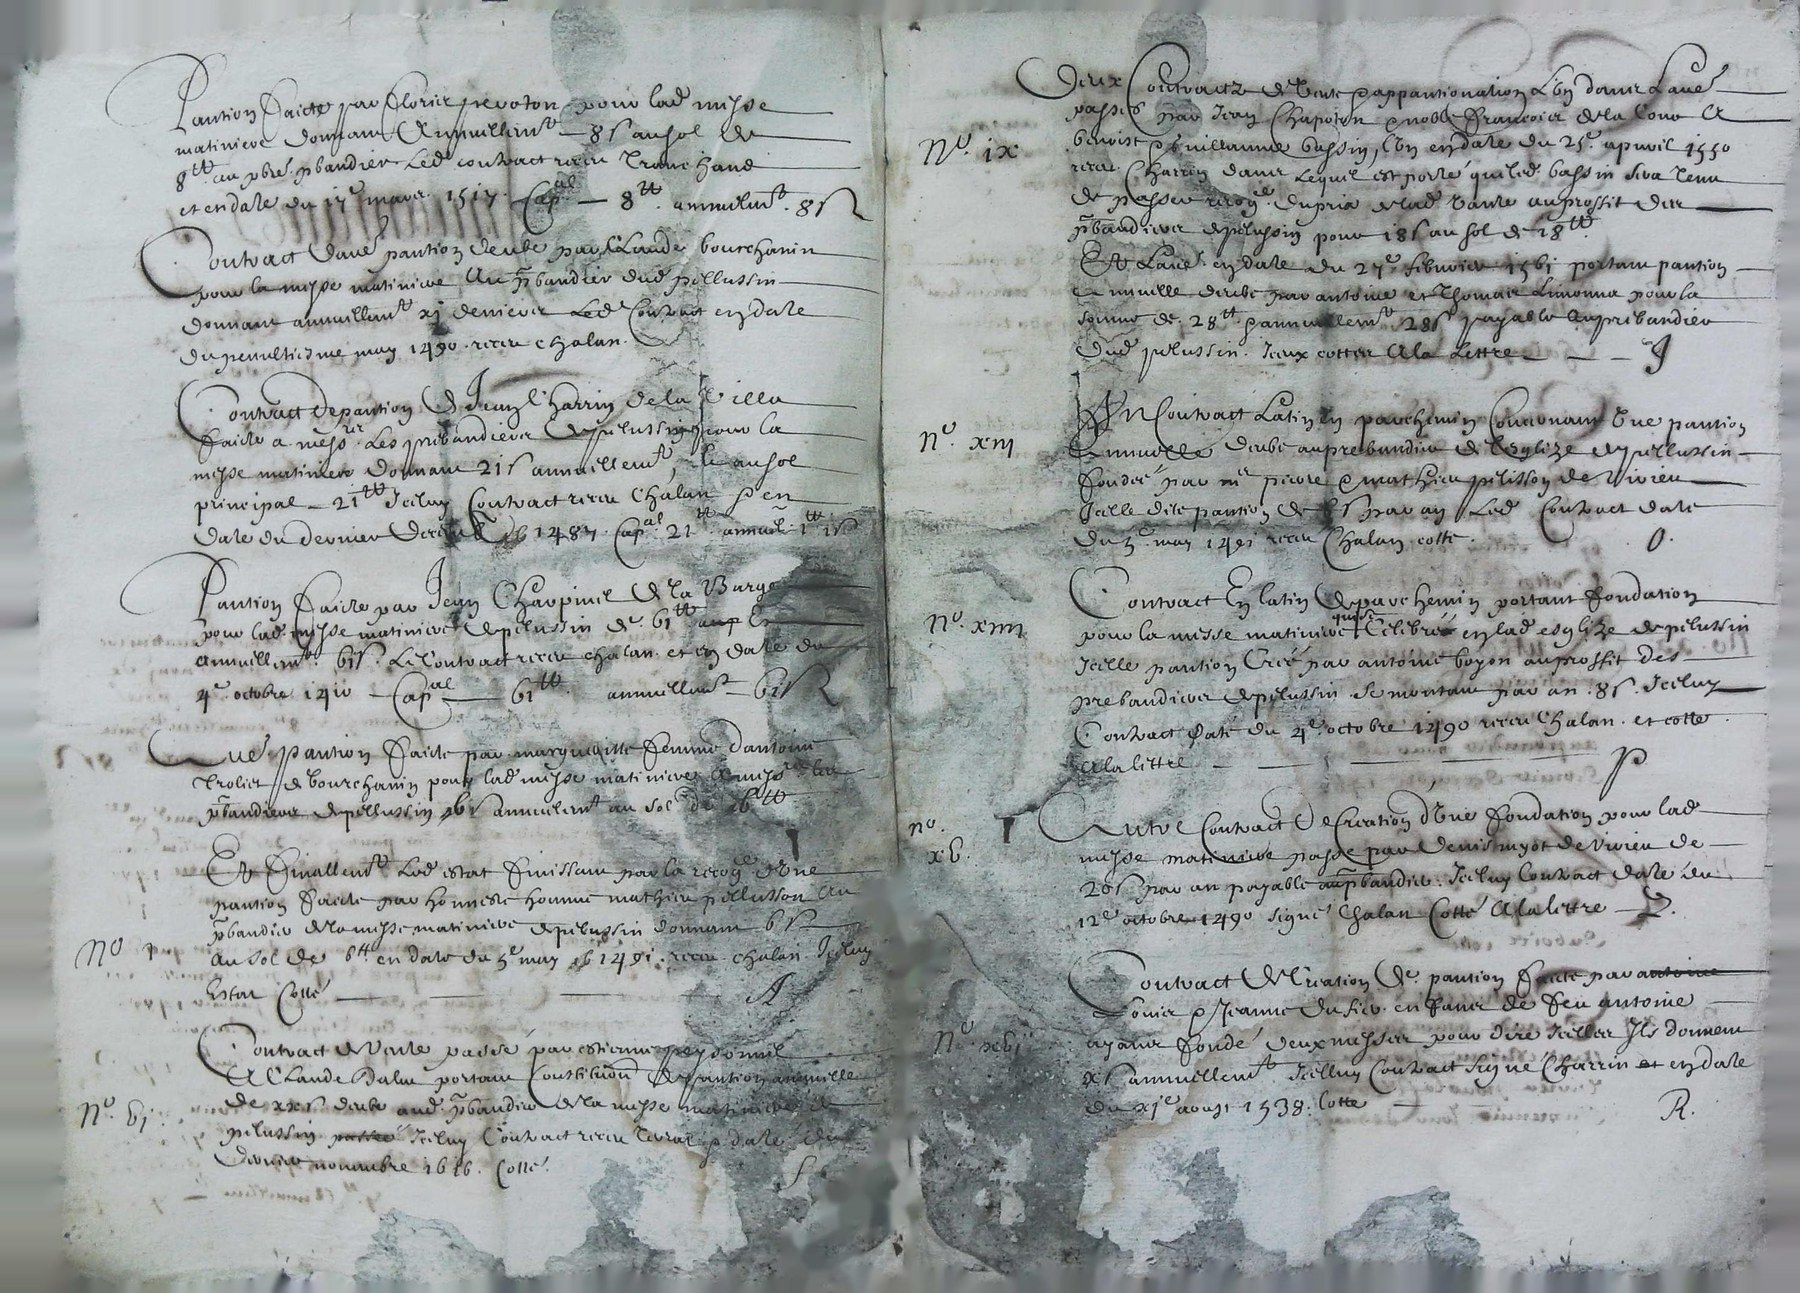 Pantion faicte par Floris peroton pour lad messe
matiniere donnant Annuellemt 8s au sol de
8tt au pbre pbandier Led contract receu Tranchand
et en date du 17e mars 1517 Capal — 8tt annuelmt 8s
Contract dune pantion deube par Claude bourchanin
pour la messe matiniere Au pbandier dud pellussin
donnant annuellemt xj deniers Led Contract en date
du penultiesme may 1490 receu Chalan
Contract de pantion de Jean Charrin de la Villa
faicte a messrs Les prebandiers de pelussin pour la
messe matiniere donnant 21s annuellemt, au sol
principal 21tt Iceluy Contract receu Chalan en
date du dernier 1487 Capal 21tt annuel 1tt 1s
Pantion faicte par Jean Charpinel de la Barge
pour lad messe matiniere de pelussin de 61tt
annuellemt 61s Le Contract receu Chalan et en date du
4e octobre 1410 — Capal — 61tt annuellemt 61s
Une pantion faicte par marguaitte femme dantoine
Trolier de bourchanin pour lad messe matiniere
pbandiers de pellussin 16s annuelemt au sol de 16tt
Et finallemt Led estat finissant par la recoge dune
pantion faicte par honneste homme mathieu pellisson Au
pbandier de la messe matiniere de pelussin donnant 6s
No
Au sol de 6tt en date du 5e may 1491 receu Chalan Iceluy
Estat Cotté — A
Contract de Vente passé par estienne peyronnel
A Claude Dalin portant Constitution de pantion annuelle
de xxs deube aud pbandier de la messe matiniere de
No 6j
pelussin Iceluy Contract receu daté du
Dernier novembre 1616 Cotté
Deux Contractz de Vente & appantionation L'un dame Laué
passés par Jean Chapoton & noble francois de la Tour A
No ix
benoist & Guillaume bassin, Lun en date du 25e apvril 1550
receu Charrin dans Lequel est porté que led bassin sera tenu
de passer recoge du prix de lad Vante au proffit des
pbandiers de pelussin pour 18s au sol de 18tt
Et Laue en date du 27e febvrier 1561 portant pantion
Annuelle deube par antoine et Thomas Limonna pour la
somme de 28tt & annuellemt 28s payable Au prebandier
dud pelussin. Iceux cottés A la Lettre — J
Un Contract Latin en parchemin Contenant Une pantion
No xiii
Annuelle deube au prebandier de leglize de pellussin
fondée par mr pierre & mathieu pelisson de Virieu
Icelle dite pantion de 6s par an Led Contract date
du 5e may 1491 receu Chalan cotte O.
Contract En latin de parchemin portant fondation
No xiiii
pour la messe matiniere qui se Celebre en lad esglize de pelussin
Icelle pantion Creé par antoine boyon au proffit des
prebandiers de pelussin se montant par an 8s. Iceluy
Contract daté du 4e octobre 1490 receu Chalan et cotté
A la lettre — P
no.
x6.
Autre Contract de Creation d'Une fondation pour lad
messe matiniere passé par denis myot de Virieu de
20s par an payable au pbandier. Iceluy Contract daté du
12e octobre 1490 signé Chalan Cotté A la lettre — Q.
Contract de Creation de pantion faicte par antoine
Louis & Jeanne du fieu enfants de feu antoine
No x6j
ayant fondé deux messes pour dire Icelles Ils donnent
xs annuellemt Iceluy Contract signé Charrin et en date
du xje aoust 1538. Cotté R.